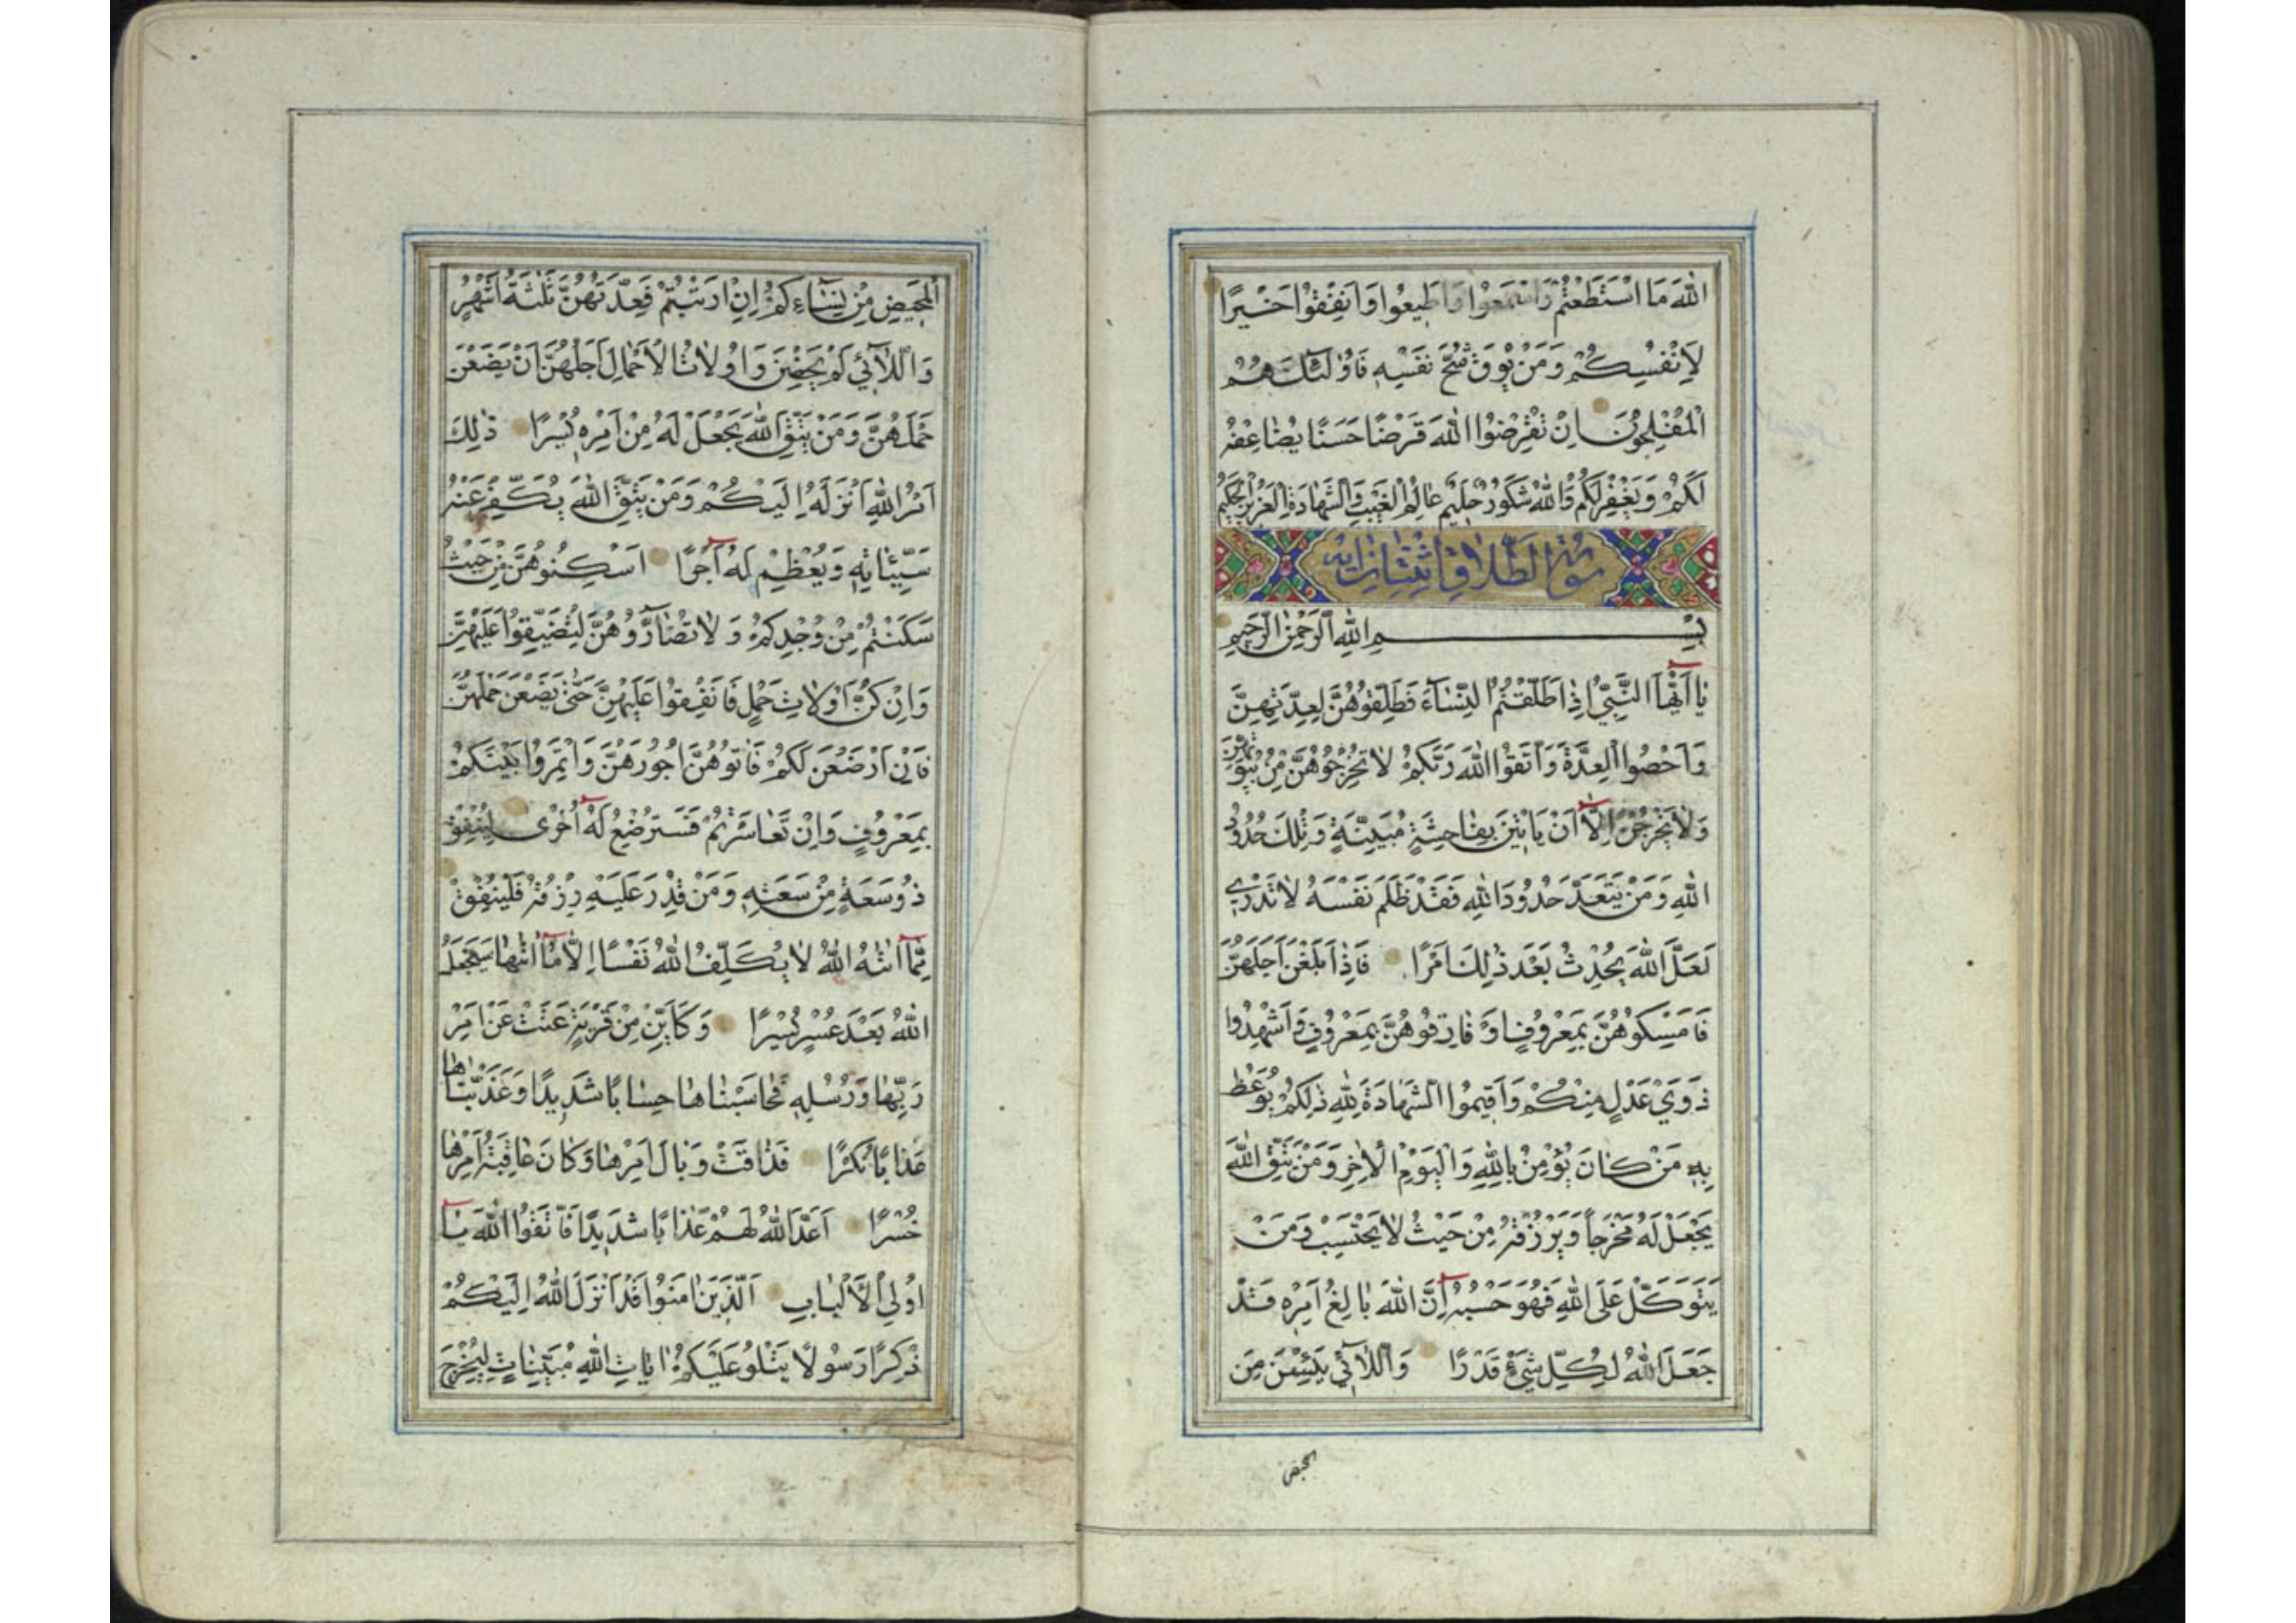 اللّٰهَ مَا اسْتَطَعْتُمْ وَاسْمَعُوا وَاَطِيعُوا وَاَنْفِقُوا خَيْرًا
لِاَنْفُسِكُمْ وَمَنْ يُوقَ شُحَّ نَفْسِهٖ فَاُولٰئِكَ هُمُ
الْمُفْلِحُونَ اِنْ تُقْرِضُوا اللّٰهَ قَرْضًا حَسَنًا يُضَاعِفْهُ
لَكُمْ وَيَغْفِرْ لَكُمْ وَاللّٰهُ شَكُورٌ حَلِيمٌ عَالِمُ الْغَيْبِ وَالشَّهَادَةِ الْعَزِيزُ الْحَكِيمُ
سورة الطلاق اثنتان اية
بِسْمِ اللّٰهِ الرَّحْمٰنِ الرَّحِيمِ
يَا اَيُّهَا النَّبِيُّ اِذَا طَلَّقْتُمُ النِّسَاءَ فَطَلِّقُوهُنَّ لِعِدَّتِهِنَّ
وَاَحْصُوا الْعِدَّةَ وَاتَّقُوا اللّٰهَ رَبَّكُمْ لَا تُخْرِجُوهُنَّ مِنْ بُيُوتِهِنَّ
وَلَا يَخْرُجْنَ اِلَّا اَنْ يَاْتِينَ بِفَاحِشَةٍ مُبَيِّنَةٍ وَتِلْكَ حُدُودُ
اللّٰهِ وَمَنْ يَتَعَدَّ حُدُودَ اللّٰهِ فَقَدْ ظَلَمَ نَفْسَهُ لَا تَدْرِي
لَعَلَّ اللّٰهَ يُحْدِثُ بَعْدَ ذٰلِكَ اَمْرًا فَاِذَا بَلَغْنَ اَجَلَهُنَّ
فَاَمْسِكُوهُنَّ بِمَعْرُوفٍ اَوْ فَارِقُوهُنَّ بِمَعْرُوفٍ وَاَشْهِدُوا
ذَوَيْ عَدْلٍ مِنْكُمْ وَاَقِيمُوا الشَّهَادَةَ لِلّٰهِ ذٰلِكُمْ يُوعَظُ
بِهٖ مَنْ كَانَ يُؤْمِنُ بِاللّٰهِ وَالْيَوْمِ الْاٰخِرِ وَمَنْ يَتَّقِ اللّٰهَ
يَجْعَلْ لَهُ مَخْرَجًا وَيَرْزُقْهُ مِنْ حَيْثُ لَا يَحْتَسِبُ وَمَنْ
يَتَوَكَّلْ عَلَى اللّٰهِ فَهُوَ حَسْبُهُ اِنَّ اللّٰهَ بَالِغُ اَمْرِهٖ قَدْ
جَعَلَ اللّٰهُ لِكُلِّ شَيْءٍ قَدْرًا وَاللَّائِي يَئِسْنَ مِنَ
المحيض
الْمَحِيضِ مِنْ نِسَائِكُمْ اِنِ ارْتَبْتُمْ فَعِدَّتُهُنَّ ثَلٰثَةُ اَشْهُرٍ
وَاللَّائِي لَمْ يَحِضْنَ وَاُولَاتُ الْاَحْمَالِ اَجَلُهُنَّ اَنْ يَضَعْنَ
حَمْلَهُنَّ وَمَنْ يَتَّقِ اللّٰهَ يَجْعَلْ لَهُ مِنْ اَمْرِهٖ يُسْرًا ذٰلِكَ
اَمْرُ اللّٰهِ اَنْزَلَهُ اِلَيْكُمْ وَمَنْ يَتَّقِ اللّٰهَ يُكَفِّرْ عَنْهُ
سَيِّئَاتِهٖ وَيُعْظِمْ لَهُ اَجْرًا اَسْكِنُوهُنَّ مِنْ حَيْثُ
سَكَنْتُمْ مِنْ وُجْدِكُمْ وَلَا تُضَارُّوهُنَّ لِتُضَيِّقُوا عَلَيْهِنَّ
وَاِنْ كُنَّ اُولَاتِ حَمْلٍ فَاَنْفِقُوا عَلَيْهِنَّ حَتّٰى يَضَعْنَ حَمْلَهُنَّ
فَاِنْ اَرْضَعْنَ لَكُمْ فَاٰتُوهُنَّ اُجُورَهُنَّ وَاْتَمِرُوا بَيْنَكُمْ
بِمَعْرُوفٍ وَاِنْ تَعَاسَرْتُمْ فَسَتُرْضِعُ لَهُ اُخْرٰى لِيُنْفِقْ
ذُو سَعَةٍ مِنْ سَعَتِهٖ وَمَنْ قُدِرَ عَلَيْهِ رِزْقُهُ فَلْيُنْفِقْ
مِمَّا اٰتٰهُ اللّٰهُ لَا يُكَلِّفُ اللّٰهُ نَفْسًا اِلَّا مَا اٰتٰهَا سَيَجْعَلُ
اللّٰهُ بَعْدَ عُسْرٍ يُسْرًا وَكَاَيِّنْ مِنْ قَرْيَةٍ عَتَتْ عَنْ اَمْرِ
رَبِّهَا وَرُسُلِهٖ فَحَاسَبْنَاهَا حِسَابًا شَدِيدًا وَعَذَّبْنَاهَا
عَذَابًا نُكْرًا فَذَاقَتْ وَبَالَ اَمْرِهَا وَكَانَ عَاقِبَةُ اَمْرِهَا
خُسْرًا اَعَدَّ اللّٰهُ لَهُمْ عَذَابًا شَدِيدًا فَاتَّقُوا اللّٰهَ يَا
اُولِي الْاَلْبَابِ اَلَّذِينَ اٰمَنُوا قَدْ اَنْزَلَ اللّٰهُ اِلَيْكُمْ
ذِكْرًا رَسُولًا يَتْلُو عَلَيْكُمْ اٰيَاتِ اللّٰهِ مُبَيِّنَاتٍ لِيُخْرِجَ